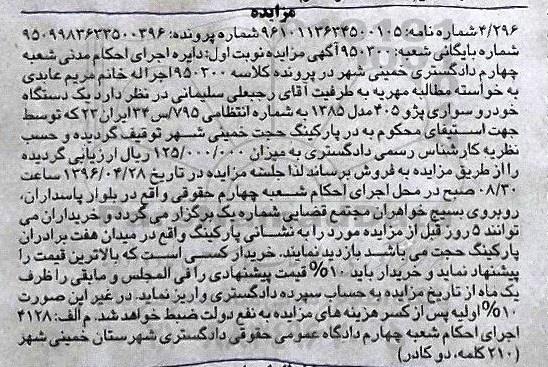 مزایده
۴/۲۹۶ شماره نامه: ۹۶۱۰۱۱۳۶۳۴۵۰۰۱۰۵ شماره پرونده: ۹۵۰۹۹۸۳۶۳۳۵۰۰۳۹۶
شماره بایگانی شعبه: ۹۵۰۳۰۰ آگهی مزایده نوبت اول: دایره اجرای احکام مدنی شعبه
چهارم دادگستری خمینی شهر در پرونده کلاسه ۹۵۰۳۰۰ اجرا له خانم مریم عابدی
به خواسته مطالبه مهریه به طرفیت آقای رجبعلی سلیمانی در نظر دارد یک دستگاه
خودرو سواری پژو ۴۰۵ مدل ۱۳۸۵ به شماره انتظامی ۷۹۵/س۳۴ ایران۲۳ که توسط
جهت استیفای محکوم به در پارکینگ حجت خمینی شهر توقیف گردیده و حسب
نظریه کارشناس رسمی دادگستری به میزان ۱۲۵/۰۰۰/۰۰۰ ریال ارزیابی گردیده
را از طریق مزایده به فروش برساند لذا جلسه مزایده در تاریخ ۱۳۹۶/۰۴/۲۸ ساعت
۰۸/۳۰ صبح در محل اجرای احکام شعبه چهارم حقوقی واقع در بلوار پاسداران،
روبروی بسیج خواهران مجتمع قضایی شماره یک برگزار می گردد و خریداران می
توانند ۵ روز قبل از مزایده مورد را به نشانی پارکینگ واقع در میدان هفت برادران
پارکینگ حجت می باشد بازدید نمایند. خریدار کسی است که بالاترین قیمت را
پیشنهاد نماید و خریدار باید ۱۰% قیمت پیشنهادی را فی المجلس و مابقی را ظرف
یک ماه از تاریخ مزایده به حساب سپرده دادگستری واریز نماید. در غیر این صورت
۱۰% اولیه پس از کسر هزینه های مزایده به نفع دولت ضبط خواهد شد. م الف: ۴۱۲۸
اجرای احکام شعبه چهارم دادگاه عمومی حقوقی دادگستری شهرستان خمینی شهر
(۲۱۰ کلمه، دو کادر)